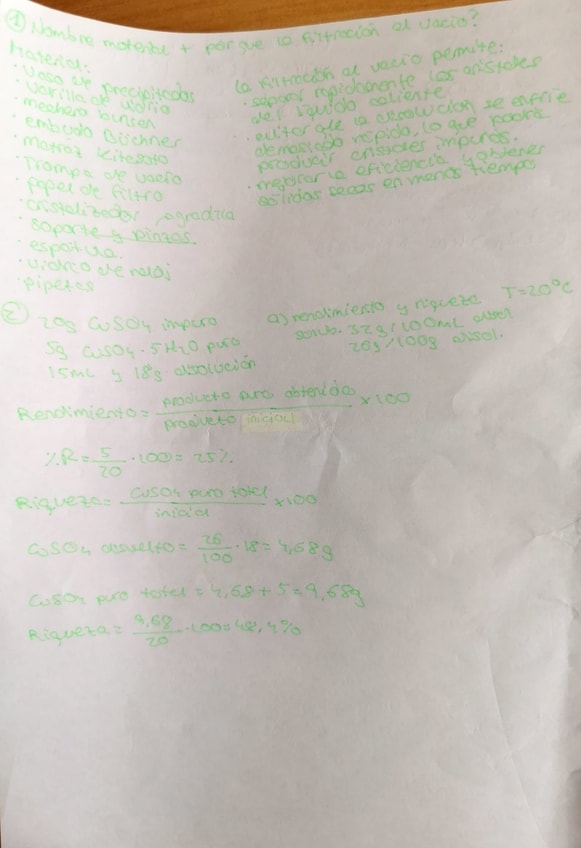 ① Nombre material + por que la filtración al vacío?
Material:
· Vaso de precipitados
· Varilla de vidrio
· mechero bunsen
· embudo Büchner
· matraz Kitasato
· Trompa de vacío
· papel de filtro
· cristalizador, agradría
· soporte y pinzas.
· espátula.
· vidrio de reloj
· pipetas
La filtración al vacío permite:
· separar rápidamente los cristales
del líquido caliente
· evitar que la disolución se enfríe
demasiado rápido, lo que podría
producir cristales impuros.
· mejorar la eficiencia y obtener
sólidos secos en menos tiempo
② 20g CuSO4 impuro
5g CuSO4·5H2O puro
15mL y 18g disolución
a) rendimiento y riqueza T=20ºC
solub. 32g/100mL disol
26g/100g disol.
Rendimiento = producto puro obtenido / producto inicial × 100
%R = 5/20 · 100 = 25%
Riqueza = CuSO4 puro total / inicial × 100
CuSO4 disuelto = 26/100 · 18 = 4,68g
CuSO4 puro total = 4,68 + 5 = 9,68g
Riqueza = 9,68/20 · 100 = 48,4%